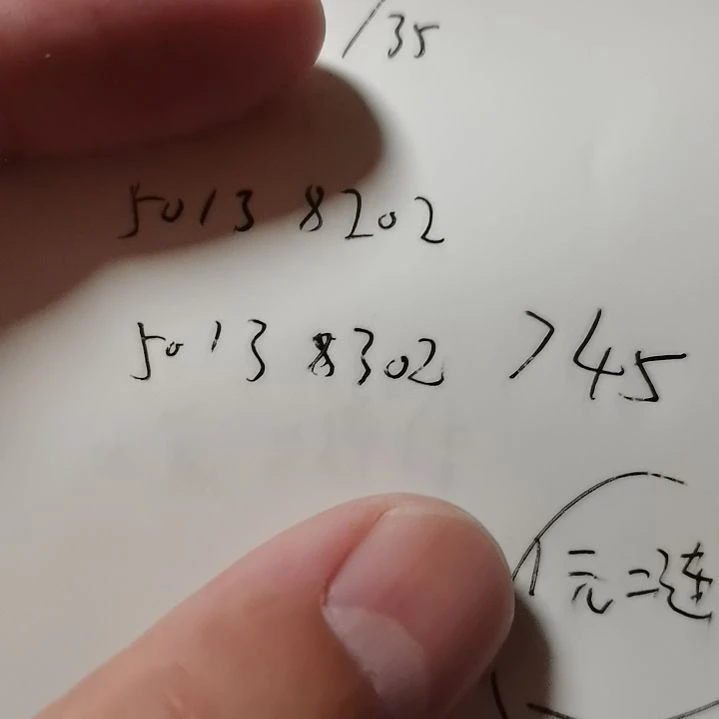 /35
5013 8202
5013 8302 >45
元二连